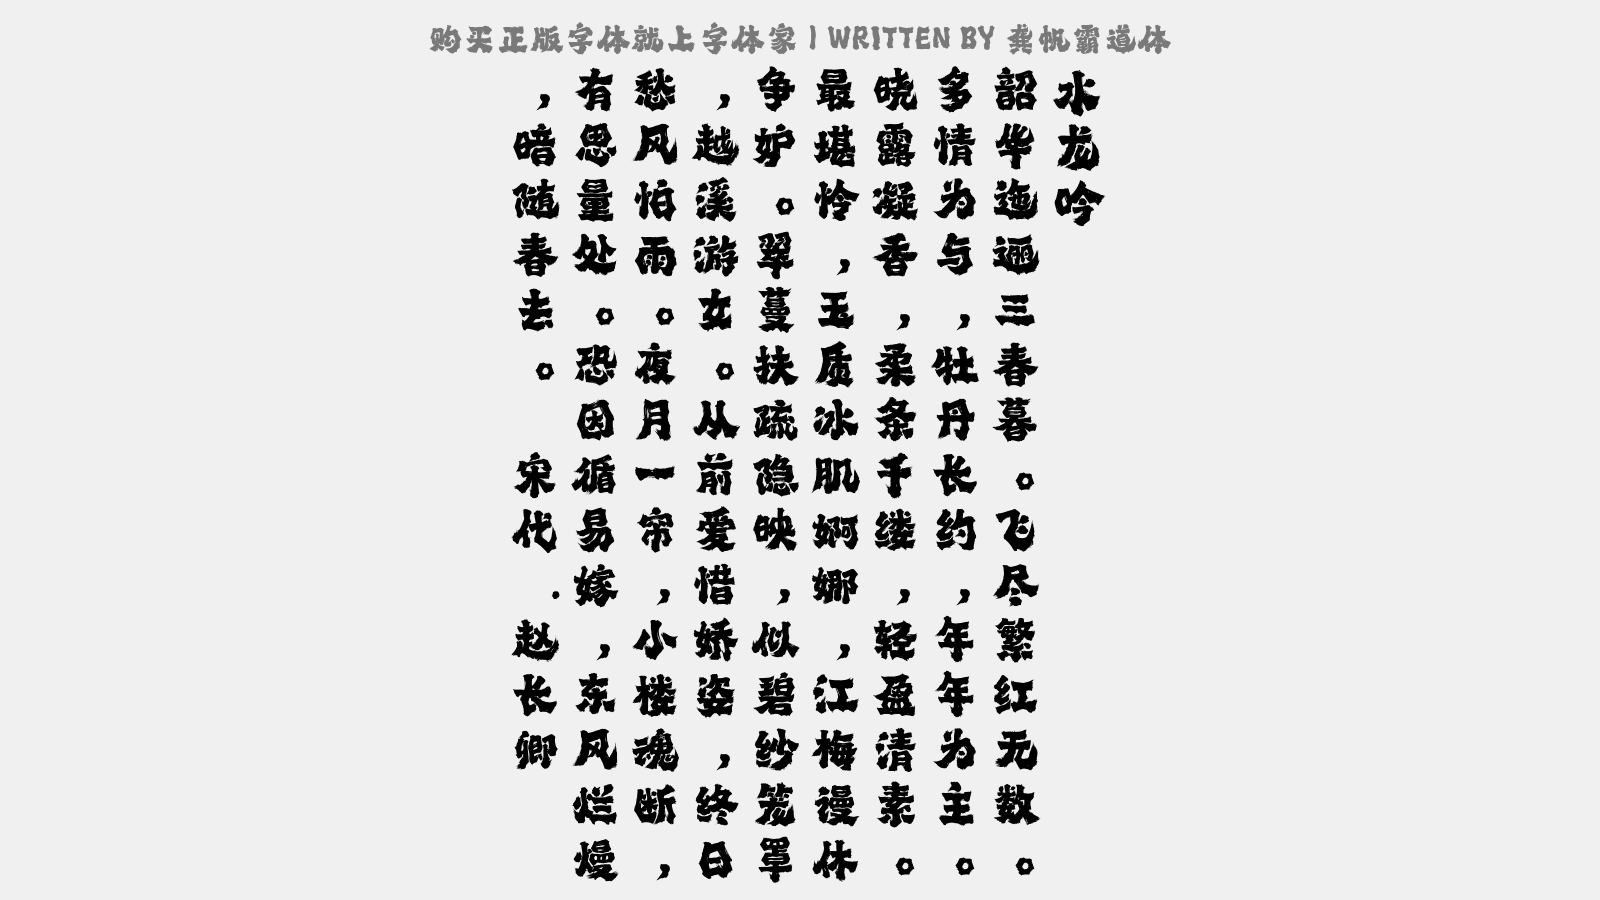 购买正版字体就上字体家 | WRITTEN BY 龚帆霸道体
水龙吟
韶华迤逦三春暮。飞尽繁红无数。
多情为与，牡丹长约，年年为主。
晓露凝香，柔条千缕，轻盈清素。
最堪怜，玉质冰肌婀娜，江梅谩休
争妒。翠蔓扶疏隐映，似碧纱笼罩
，越溪游女。从前爱惜娇姿，终日
愁风怕雨。夜月一帘，小楼魂断，
有思量处。恐因循易嫁，东风烂熳
，暗随春去。 宋代.赵长卿